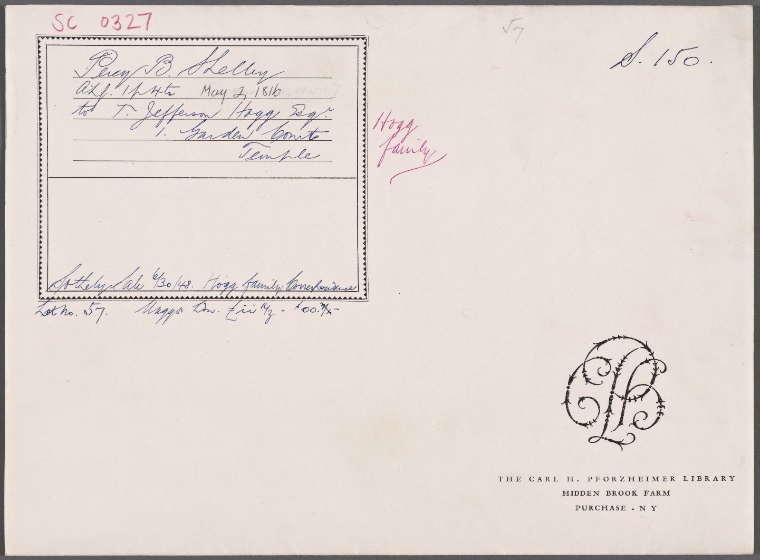 SC 0327
57
S. 150.
Percy B. Shelley
May 2, 1816
to T. Jefferson Hogg Esqr.
1. Garden Courts
Temple
Hogg
family
Sotheby Sale 6/30/48. Hogg family Correspondence
Lot No. 57. Maggs
THE CARL H. PFORZHEIMER LIBRARY
HIDDEN BROOK FARM
PURCHASE . NY